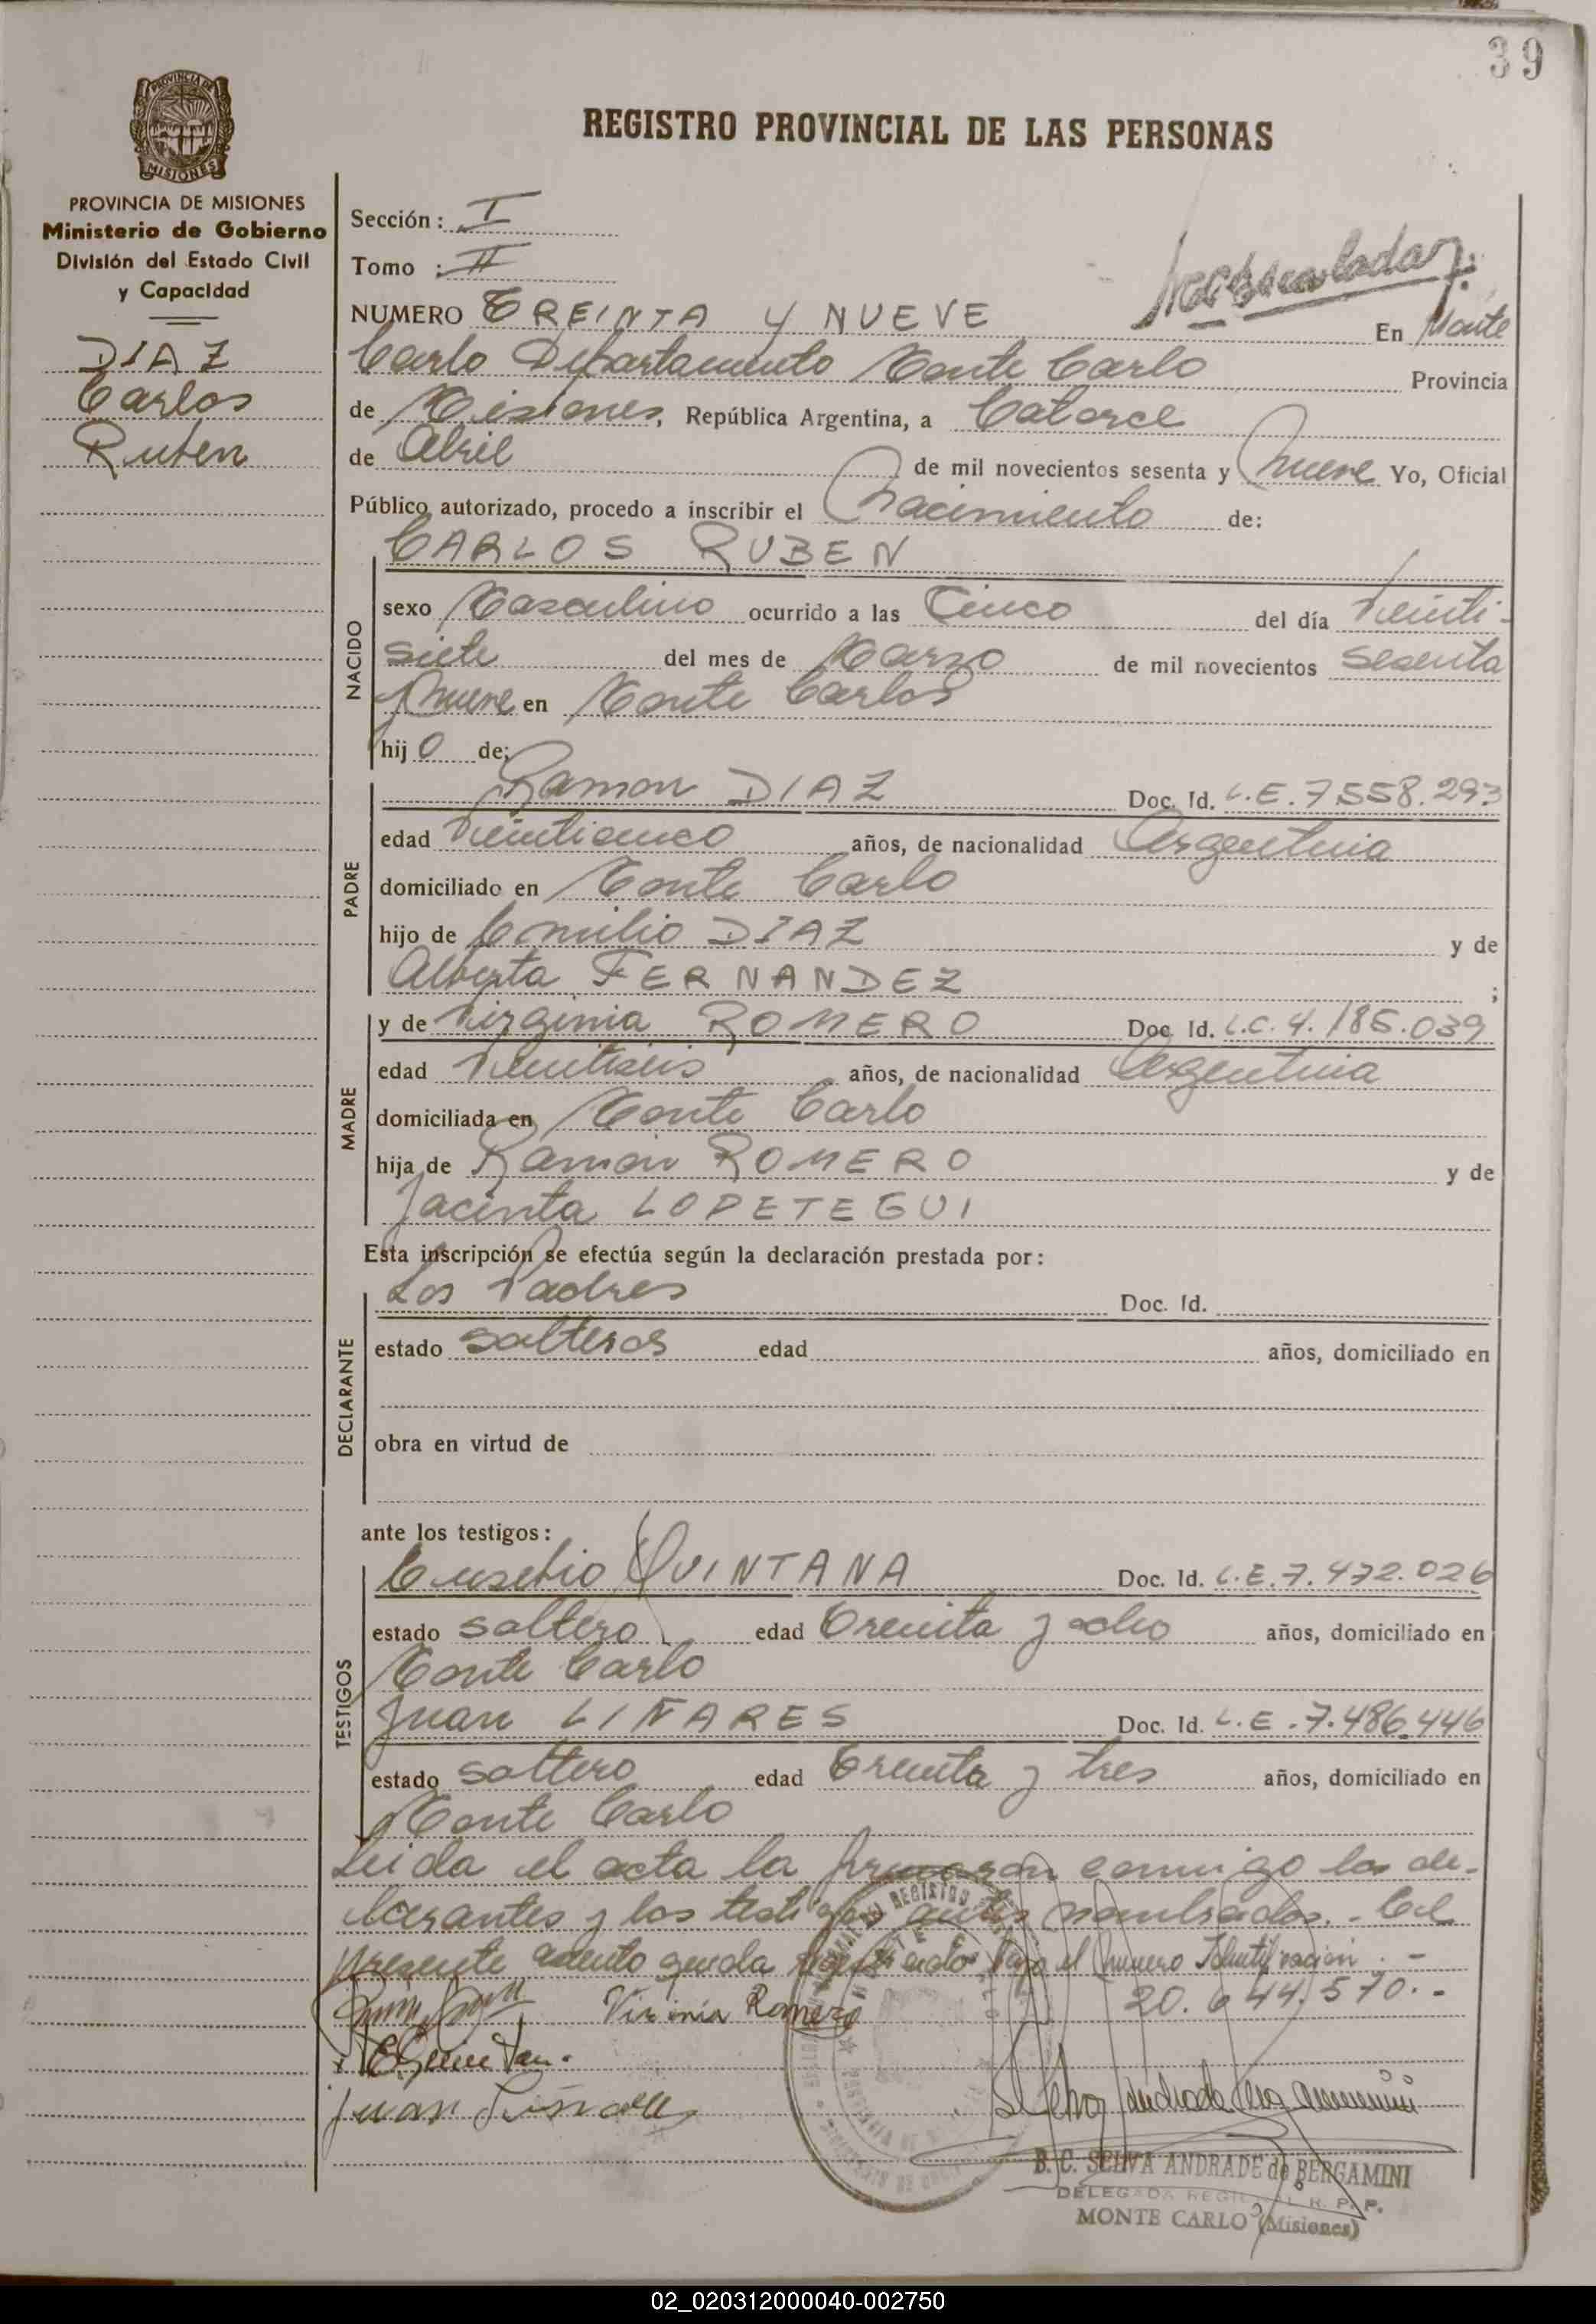 39
PROVINCIA DE
MISIONES
REGISTRO PROVINCIAL DE LAS PERSONAS
PROVINCIA DE MISIONES
Ministerio de Gobierno
División del Estado Civil
y Capacidad
DIAZ
Carlos
Ruben
Sección: I
Tomo : II
NUMERO TREINTA Y NUEVE En Monte
Carlo Departamento Monte Carlo Provincia
de Misiones, República Argentina, a Catorce
de Abril de mil novecientos sesenta y Nueve Yo, Oficial
Público autorizado, procedo a inscribir el Nacimiento de:
CARLOS RUBEN
NACIDO
sexo Masculino ocurrido a las Cinco del día Veinti-
siete del mes de Marzo de mil novecientos sesenta
y nueve en Monte Carlos
hijo de:
PADRE
Ramon DIAZ Doc. Id. L.E. 7.558.293
edad Veinticinco años, de nacionalidad Argentina
domiciliado en Monte Carlo
hijo de Emilio DIAZ y de
Alberta FERNANDEZ ;
MADRE
y de Virginia ROMERO Doc. Id. L.C. 4.185.039
edad Veintiseis años, de nacionalidad Argentina
domiciliada en Monte Carlo
hija de Ramon ROMERO y de
Jacinta LOPETEGUI
Esta inscripción se efectúa según la declaración prestada por:
DECLARANTE
Los Padres Doc. Id.
estado solteros edad años, domiciliado en
obra en virtud de
ante los testigos:
TESTIGOS
Eusebio QUINTANA Doc. Id. L.E. 7.472.026
estado soltero edad Treinta y ocho años, domiciliado en
Monte Carlo
Juan LIÑARES Doc. Id. L.E. 7.486.446
estado soltero edad Treinta y tres años, domiciliado en
Monte Carlo
Leida el acta la firmaron conmigo los de-
clarantes y los testigos antes nombrados.- El
presente asiento queda registrado bajo el Numero Identificacion.-
20.644.570.-
Virinia Romero
Juan
B. C. SELVA ANDRADE de BERGAMINI
DELEGADA R. P. P.
MONTE CARLO (Misiones)
02_020312000040-002750